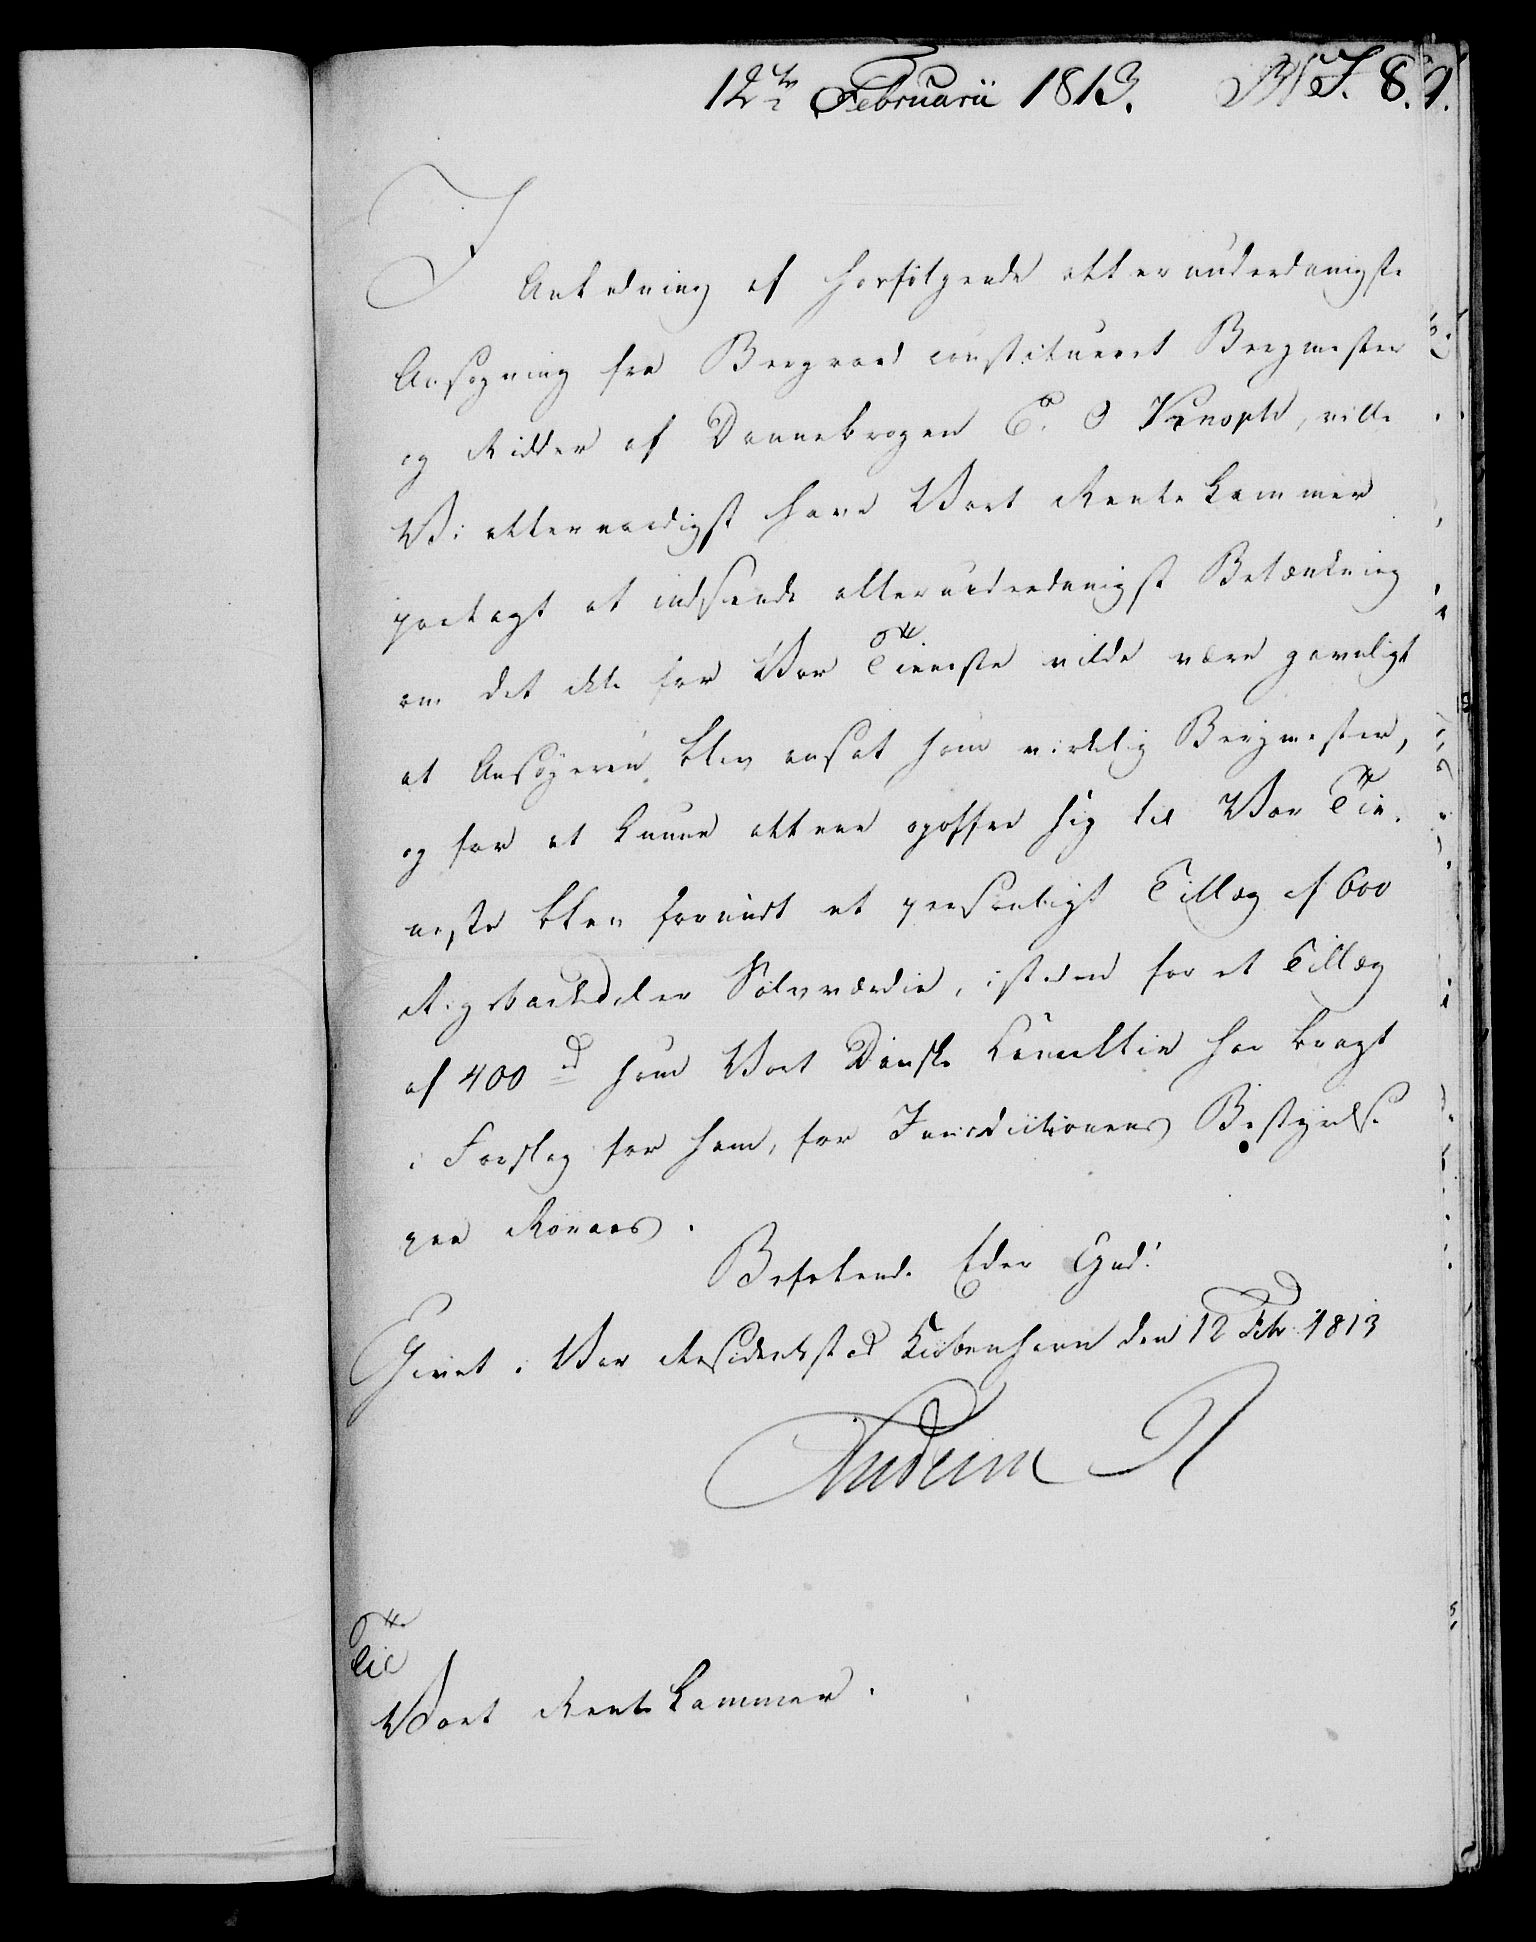 12te Februarii 1813.
I Anledning af hosfölgende allerunderdanigste
Ansøgning fra Bergraad constitueret Bergmester
og Ridder af Dannebrogen C. O Knoph, ville
Vi allernaadigst have Vort Rentekammer
paalagt at indsende allerunderdanigst Betænkning
om det ikke for Vor Tieneste vilde være gavnligt
at Ansøgeren blev ansat som virkelig Bergmester,
og for at kunne alene opoffre sig til Vor Tie-
neste blev forundt et personligt Tillæg af 600
Rigsbankdaler Sölvværdie, istæden for et Tillæg
af 400 rd som Vort Danske Cancellie har bragt
i Forslag for ham, for Jurisdictionens Bestyrelse
paa Röraas.
Befalende Eder Gud!
Givet i Vor Residentsstad Kiöbenhavn den 12 Febr 1813
Til
Vort Rentekammer.